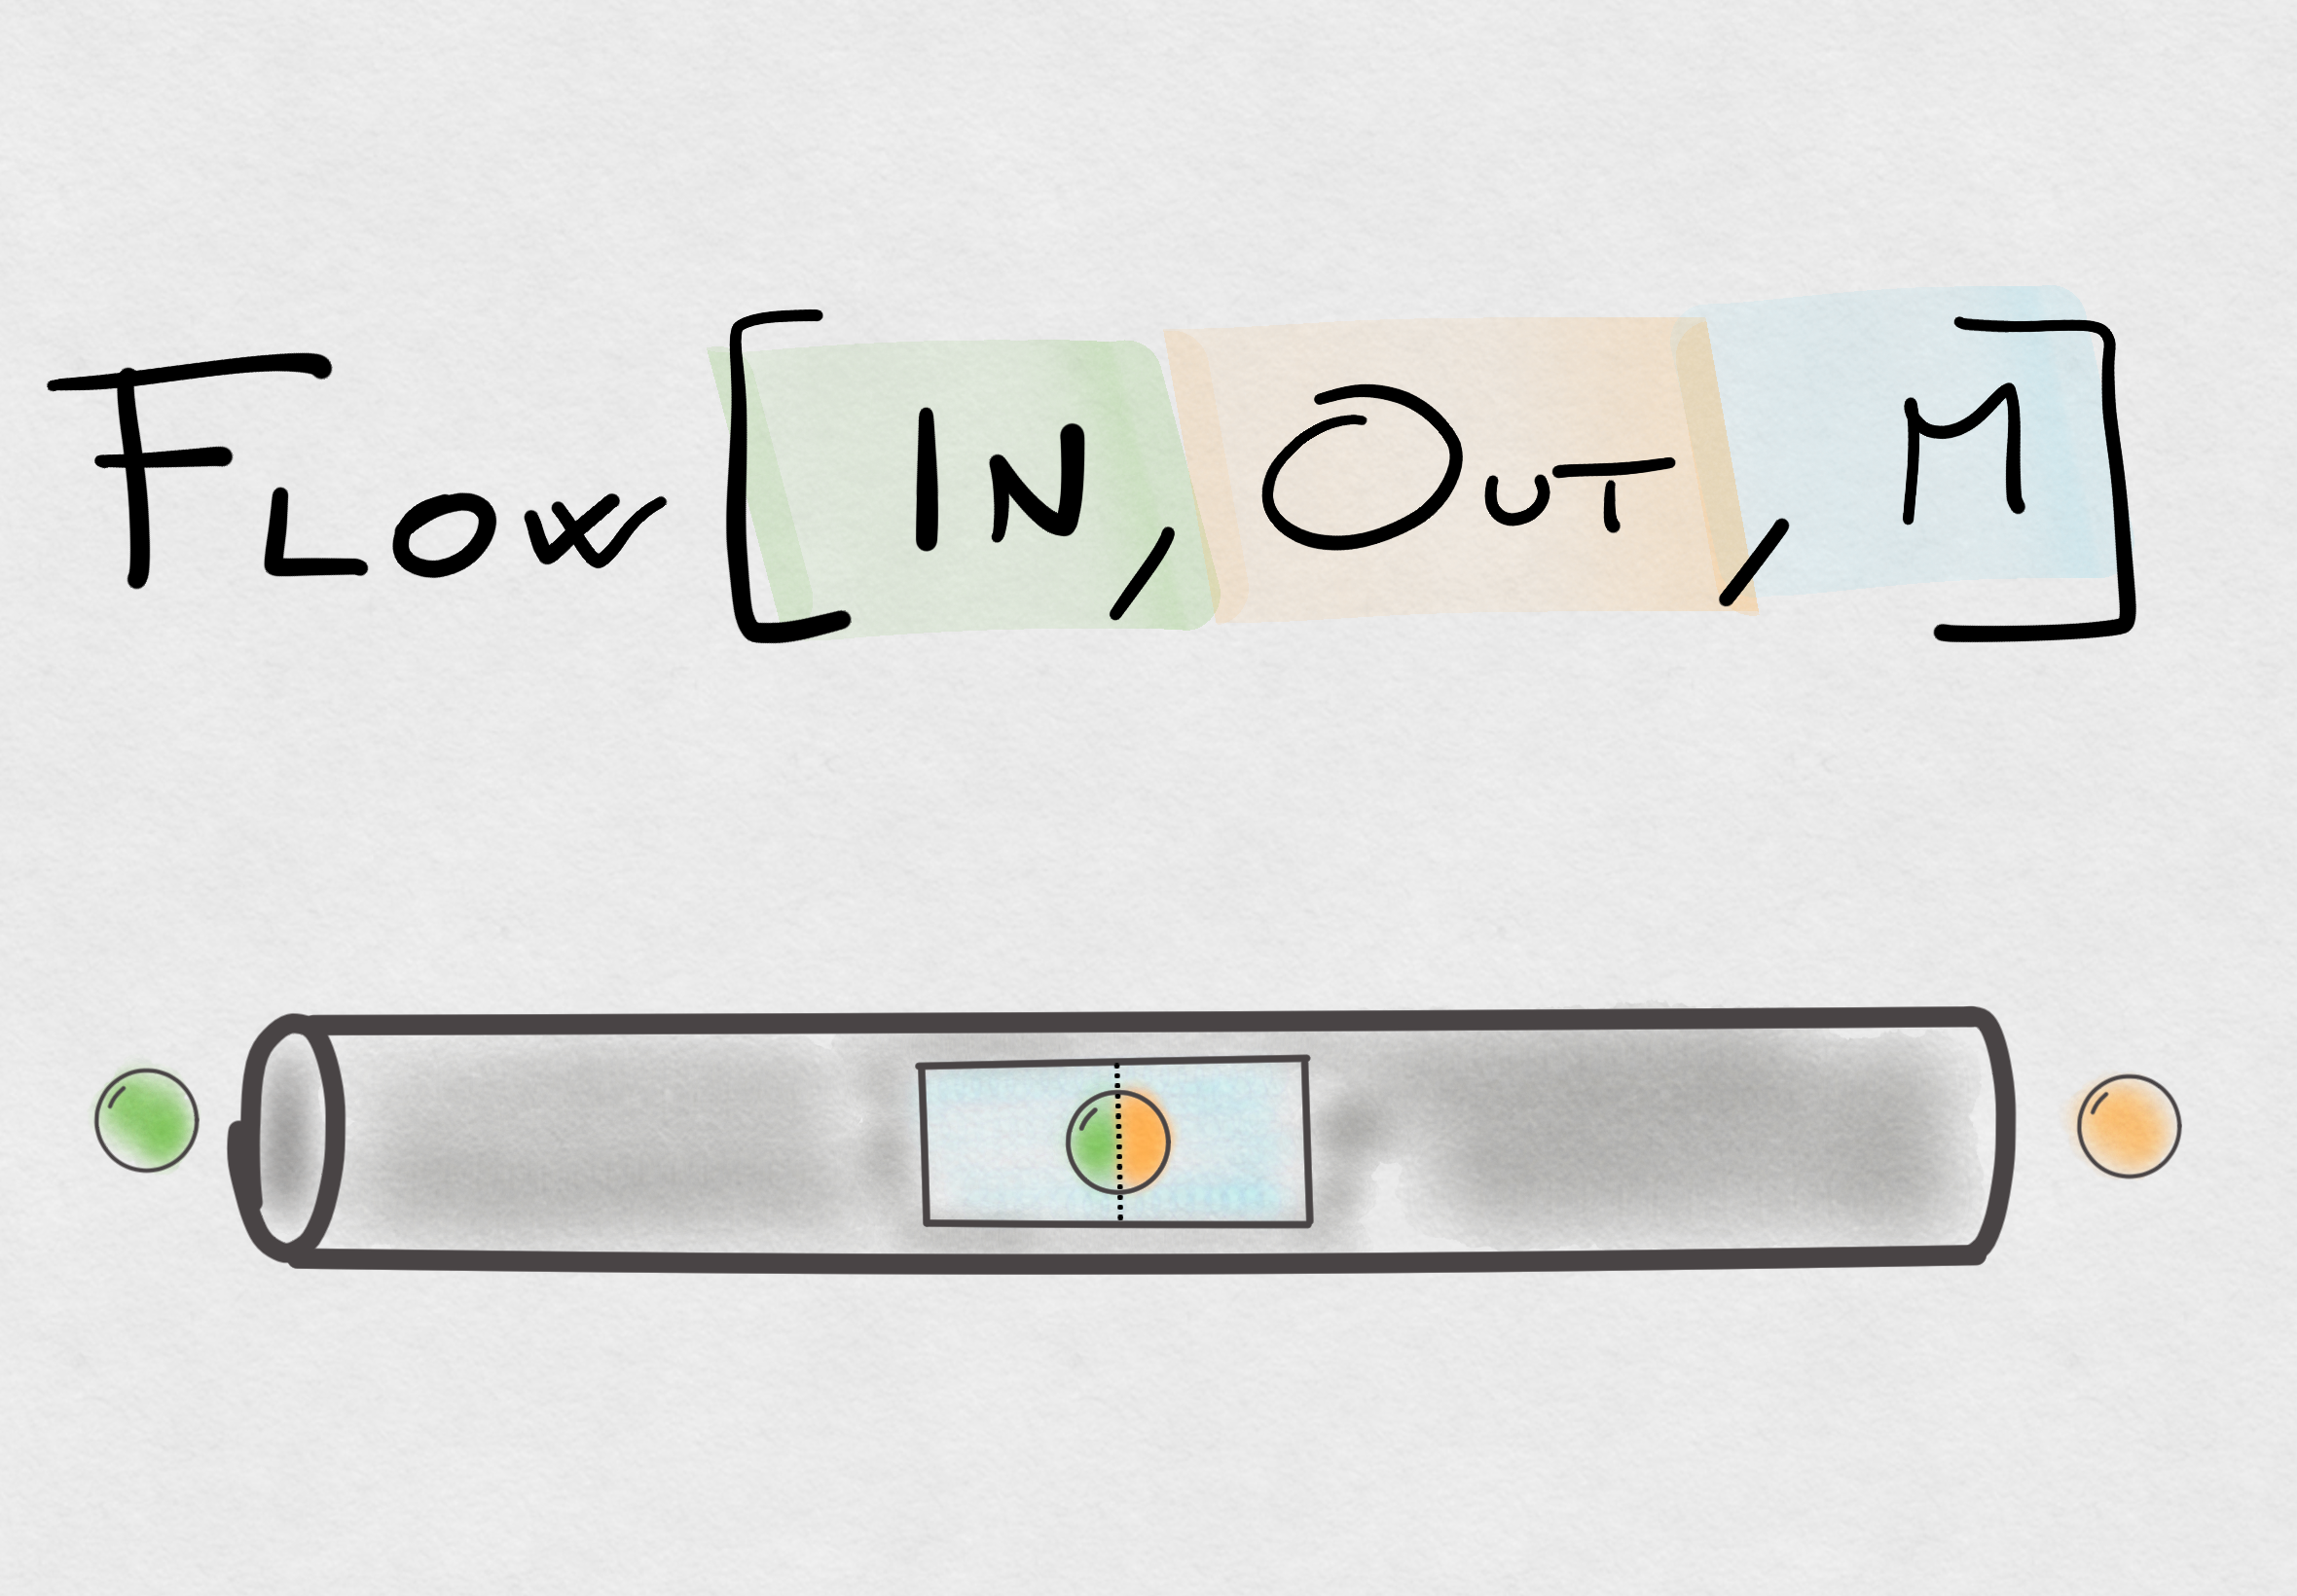 Flow [IN, Out, M]